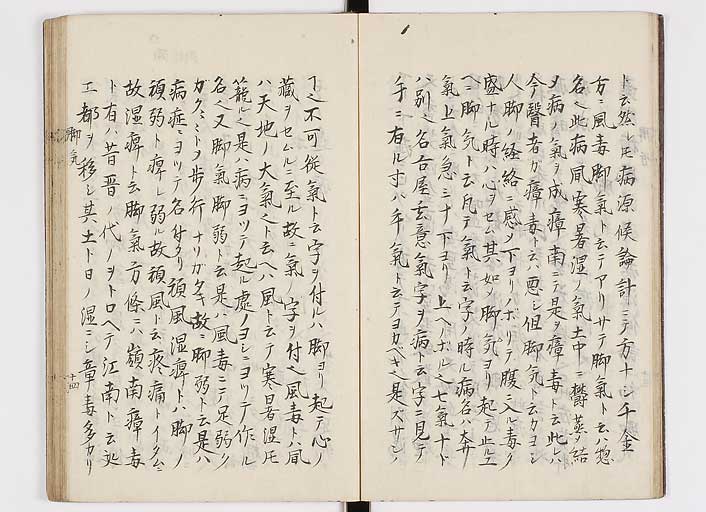 ト云然レ𪜈病源候論計ニテ方ナシ千金
方ニ風毒脚氣ト云テアリサテ脚氣ト云ハ惣
名也此病風寒暑湿ノ氣土中ニ鬱蒸ノ結
ヲ病ノ氣ヲ成瘴南ニテ是ヲ瘴毒ト云此レハ
今醫者カ瘴毒ト云ハ悪シ但脚氣ト云カヨシ
人脚ノ経絡ニ感メ下ヨリノボリテ腹ニ入ル毒ク
盛ナル時ハ心ヲセム其如ノ脚氣ヨリ起テ止ル工
ヘニ脚氣ト云凡テ氣ト云字ノ時ル病名ハ奔
氣上氣急ミナ下ヨリ上ヘノボル也七氣ナト
ハ別也名古屋玄意氣字ヲ病ト云字ニ見テ
手ニ有ル寸ハ手氣ト云テヨカベキ是ズサレノ
丁之不可従氣ト云字ヲ付ルハ脚ヨリ起テ心ノ
藏ヲセムルニ至ル故ニ氣ノ字ヲ付之風毒ト風
ハ天地ノ大氣也ト云ヘハ風ト云テ寒暑湿𪜈
籠ル也是ハ病ニヨツテ起ル處ノヨシニヨツテ作ル
名也又脚氣脚弱ト云是ハ風毒ニテ足弱ク
ガクミトヲ歩行ナリガタキ故ニ脚弱ト云是ハ
病症ニヨツテ名付タリ頑風湿痺トハ脚ノ
頑弱ト痺レ弱ル故頑風ト云疼痛トイタムニ
故湿痺ト云脚氣方條ニハ嶺南瘴毒
ト有ハ昔晋ノ代ノヲトロヘテ江南ト云処
エ都ヲ移シ其土ト日ノ湿ニシ章毒多カリ
脚気
十四